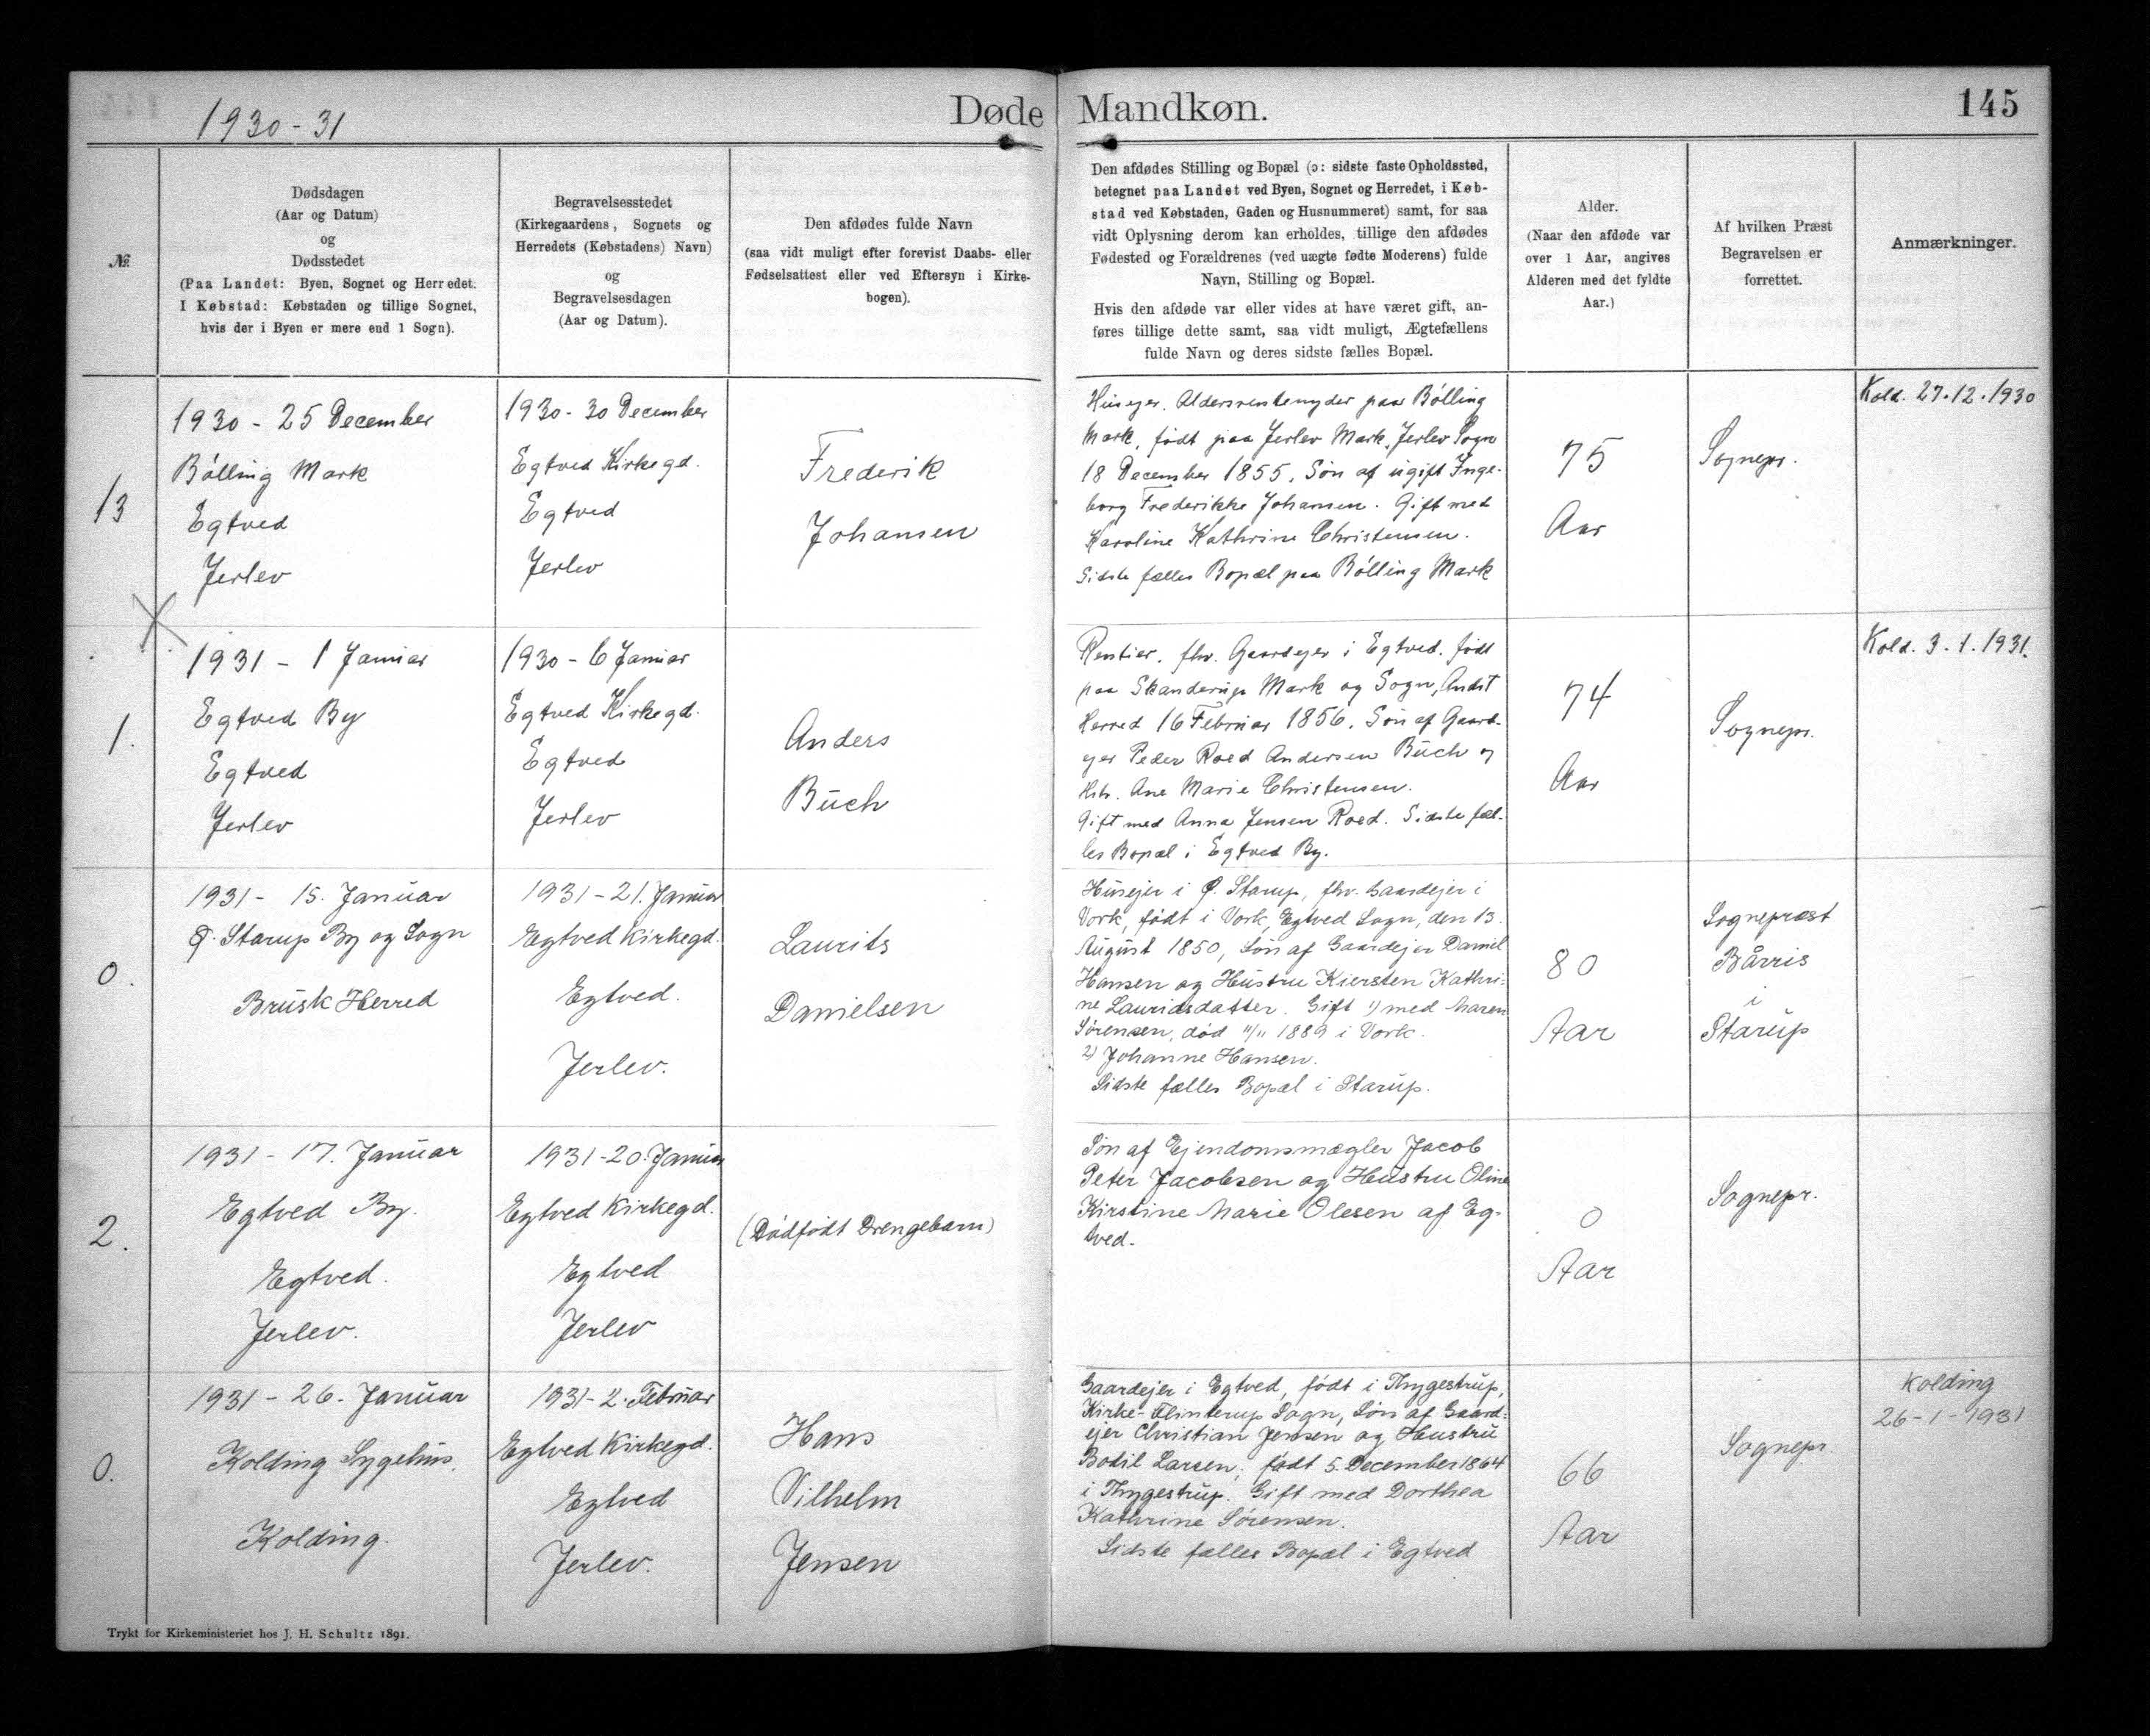 1930-31
Døde Mandkøn.
145
№
Dødsdagen
(Aar og Datum)
og
Dødsstedet
(Paa Landet: Byen, Sognet og Herredet.
I Købstad: Købstaden og tillige Sognet,
hvis der i Byen er mere end 1 Sogn).
Begravelsesstedet
(Kirkegaardens, Sognets og
Herredets (Købstadens) Navn)
og
Begravelsesdagen
(Aar og Datum).
Den afdødes fulde Navn
(saa vidt muligt efter forevist Daabs- eller
Fødselsattest eller ved Eftersyn i Kirke-
bogen).
Den afdødes Stilling og Bopæl (ɔ: sidste faste Opholdssted,
betegnet paa Landet ved Byen, Sognet og Herredet, i Køb-
stad ved Købstaden, Gaden og Husnummeret) samt, for saa
vidt Oplysning derom kan erholdes, tillige den afdødes
Fødested og Forældrenes (ved uægte fødte Moderens) fulde
Navn, Stilling og Bopæl.
Hvis den afdøde var eller vides at have været gift, an-
føres tillige dette samt, saa vidt muligt, Ægtefællens
fulde Navn og deres sidste fælles Bopæl.
Alder.
(Naar den afdøde var
over 1 Aar, angives
Alderen med det fyldte
Aar.)
Af hvilken Præst
Begravelsen er
forrettet.
Anmærkninger.
13
1930 - 25 December
Bølling Mark
Egtved
Jerlev
1930 - 30 December
Egtved Kirkegd.
Egtved
Jerlev
Frederik
Johansen
Husejer. Aldersrentenyder paa Bølling
Mark, født paa Jerlev Mark, Jerlev Sogn
18 December 1855. Søn af ugift Inge-
borg Frederikke Johansen. Gift med
Karoline Kathrine Christensen.
Sidste fælles Bopæl paa Bølling Mark
75
Aar
Sognepr.
Kold. 27.12.1930
1.
1931 - 1 Januar
Egtved By
Egtved
Jerlev
1930 - 6 Januar
Egtved Kirkegd.
Egtved
Jerlev
Anders
Buch
Rentier. fhv. Gaardejer i Egtved. født
paa Skanderup Mark og Sogn, Andst
Herred 16 Februar 1856. Søn af Gaard-
ejer Peder Roed Andersen Buch og
Hstr. Ane Marie Christensen.
Gift med Anna Jensen Roed. Sidste fæl-
les Bopæl i Egtved By.
74
Aar
Sognepr.
Kold. 3.1.1931.
0.
1931 - 15. Januar
Ø. Starup By og Sogn
Brusk Herred
1931 - 21. Januar
Egtved Kirkegd.
Egtved.
Jerlev.
Laurits
Danielsen
Husejer i Ø. Starup, fhv. Gaardejer i
Vork, født i Vork, Egtved Sogn, den 13.
August 1850, Søn af Gaardejer Daniel
Hansen og Hustru Kiersten Kathri-
ne Lauridsdatter. Gift 1) med Maren
Sørensen, død 11/11 1889 i Vork.
2) Johanne Hansen.
Sidste fælles Bopæl i Starup.
80
Aar
Sognepræst
Bårris
i
Starup
2.
1931 - 17. Januar
Egtved By.
Egtved.
Jerlev.
1931 - 20. Januar
Egtved Kirkegd.
Egtved
Jerlev
(Dødfødt Drengebarn)
Søn af Ejendomsmægler Jacob
Peter Jacobsen og Hustru Oline
Kirstine Marie Olesen af Eg-
tved.
0
Aar
Sognepr.
0.
1931 - 26. Januar
Kolding Sygehus.
Kolding.
1931 - 2. Februar
Egtved Kirkegd.
Egtved
Jerlev.
Hans
Vilhelm
Jensen
Gaardejer i Egtved, født i Thygestrup,
Kirke-Flinterup Sogn, Søn af Gaard-
ejer Christian Jensen og Hustru
Bodil Larsen, født 5. December 1864
i Thygestrup. Gift med Dorthea
Kathrine Sørensen.
Sidste fælles Bopæl i Egtved
66
Aar
Sognepr.
Kolding
26-1-1931
Trykt for Kirkeministeriet hos J. H. Schultz 1891.